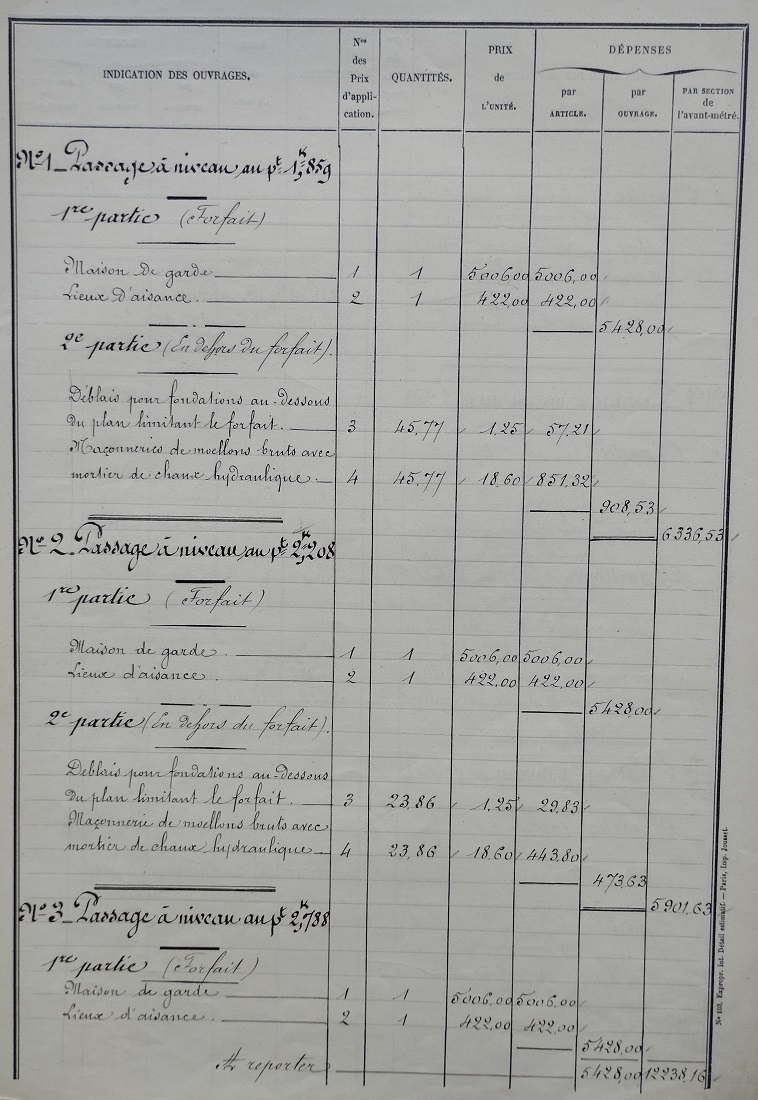 INDICATION DES OUVRAGES.
Nos des Prix d'appli-cation.
QUANTITÉS.
PRIX de L'UNITÉ.
DÉPENSES
par ARTICLE.
par OUVRAGE.
PAR SECTION de l'avant-métré.
No 1_ Passage à niveau au pt 1k,859
1re partie (Forfait)
Maison de garde 1 1 5006,00 5006,00
Lieux d'aisance. 2 1 422,00 422,00
5428,00
2e partie (En dehors du forfait).
Déblais pour fondations au-dessous
du plan limitant le forfait. 3 45,77 1,25 57.21
Maçonneries de moellons bruts avec
mortier de chaux hydraulique. 4 45,77 18,60 851,32
908,53
6336,53
No 2_ Passage à niveau au pt 2k,208
1re partie (Forfait)
Maison de garde. 1 1 5006,00 5006,00
Lieux d'aisance. 2 1 422,00 422,00
5428,00
2e partie (En dehors du forfait).
Déblais pour fondations au-dessous
du plan limitant le forfait. 3 23,86 1,25 29,83
Maçonnerie de moellons bruts avec
mortier de chaux hydraulique 4 23,86 18,60 443,80
473,63
5901,63
No 3_ Passage à niveau au pt 2k,788
1re partie (Forfait)
Maison de garde 1 1 5006,00 5006,00
Lieux d'aisance. 2 1 422,00 422,00
5428,00
A reporter 5428,00 12238,16
No 103. Expropr. Int. Détail estimatif. — Paris, Imp. Jousset.